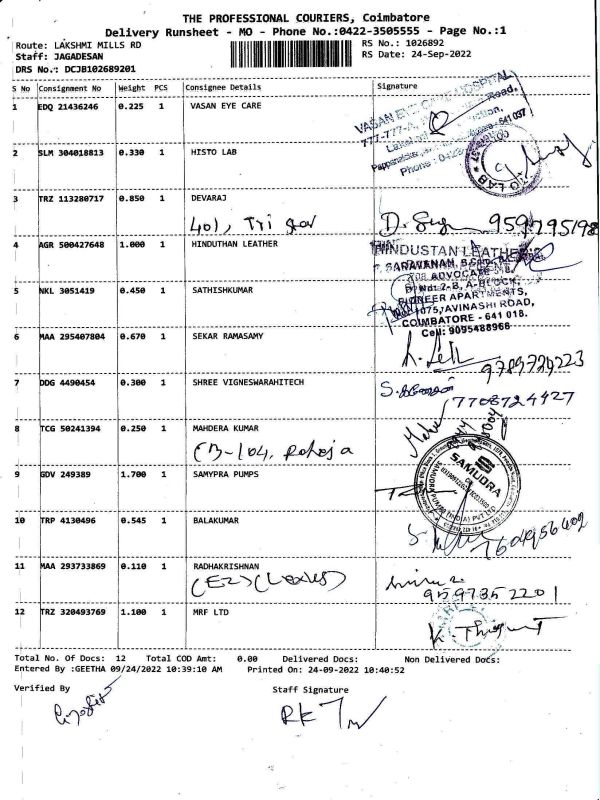 THE PROFESSIONAL COURIERS, Coimbatore
Delivery Runsheet - MO - Phone No.:0422-3505555 - Page No.:1
Route: LAKSHMI MILLS RD RS No.: 1026892
Staff: JAGADESAN RS Date: 24-Sep-2022
DRS No.: DCJB102689201
S No Consignment No Weight PCS Consignee Details Signature
1 EDQ 21436246 0.225 1 VASAN EYE CARE
VASAN EYE CARE HOSPITAL
2 SLM 304018813 0.330 1 HISTO LAB
3 TRZ 113280717 0.850 1 DEVARAJ
401, Tri star
4 AGR 500427648 1.000 1 HINDUTHAN LEATHER
HINDUSTAN LEATHER
SARAVANAN
ADVOCATE
5 NKL 3051419 0.450 1 SATHISHKUMAR
2-B, A-BLOCK,
PIONEER APARTMENTS,
1075, AVINASHI ROAD,
COIMBATORE - 641 018.
Cell: 9095488968
6 MAA 295407804 0.670 1 SEKAR RAMASAMY
9789729223
7 DDG 4490454 0.300 1 SHREE VIGNESWARAHITECH
7708724427
8 TCG 50241394 0.250 1 MAHDERA KUMAR
9 GDV 249389 1.700 1 SAMYPRA PUMPS
SAMUDRA
10 TRP 4130496 0.545 1 BALAKUMAR
7604956402
11 MAA 293733869 0.110 1 RADHAKRISHNAN
9597352201
12 TRZ 320493769 1.100 1 MRF LTD
Total No. Of Docs: 12 Total COD Amt: 0.00 Delivered Docs: Non Delivered Docs:
Entered By :GEETHA 09/24/2022 10:39:10 AM Printed On: 24-09-2022 10:40:52
Verified By Staff Signature